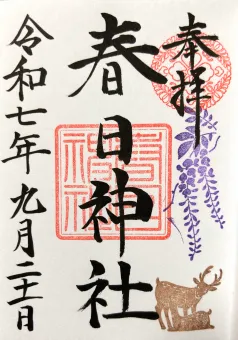 奉拝
春日神社
令和七年九月二十一日